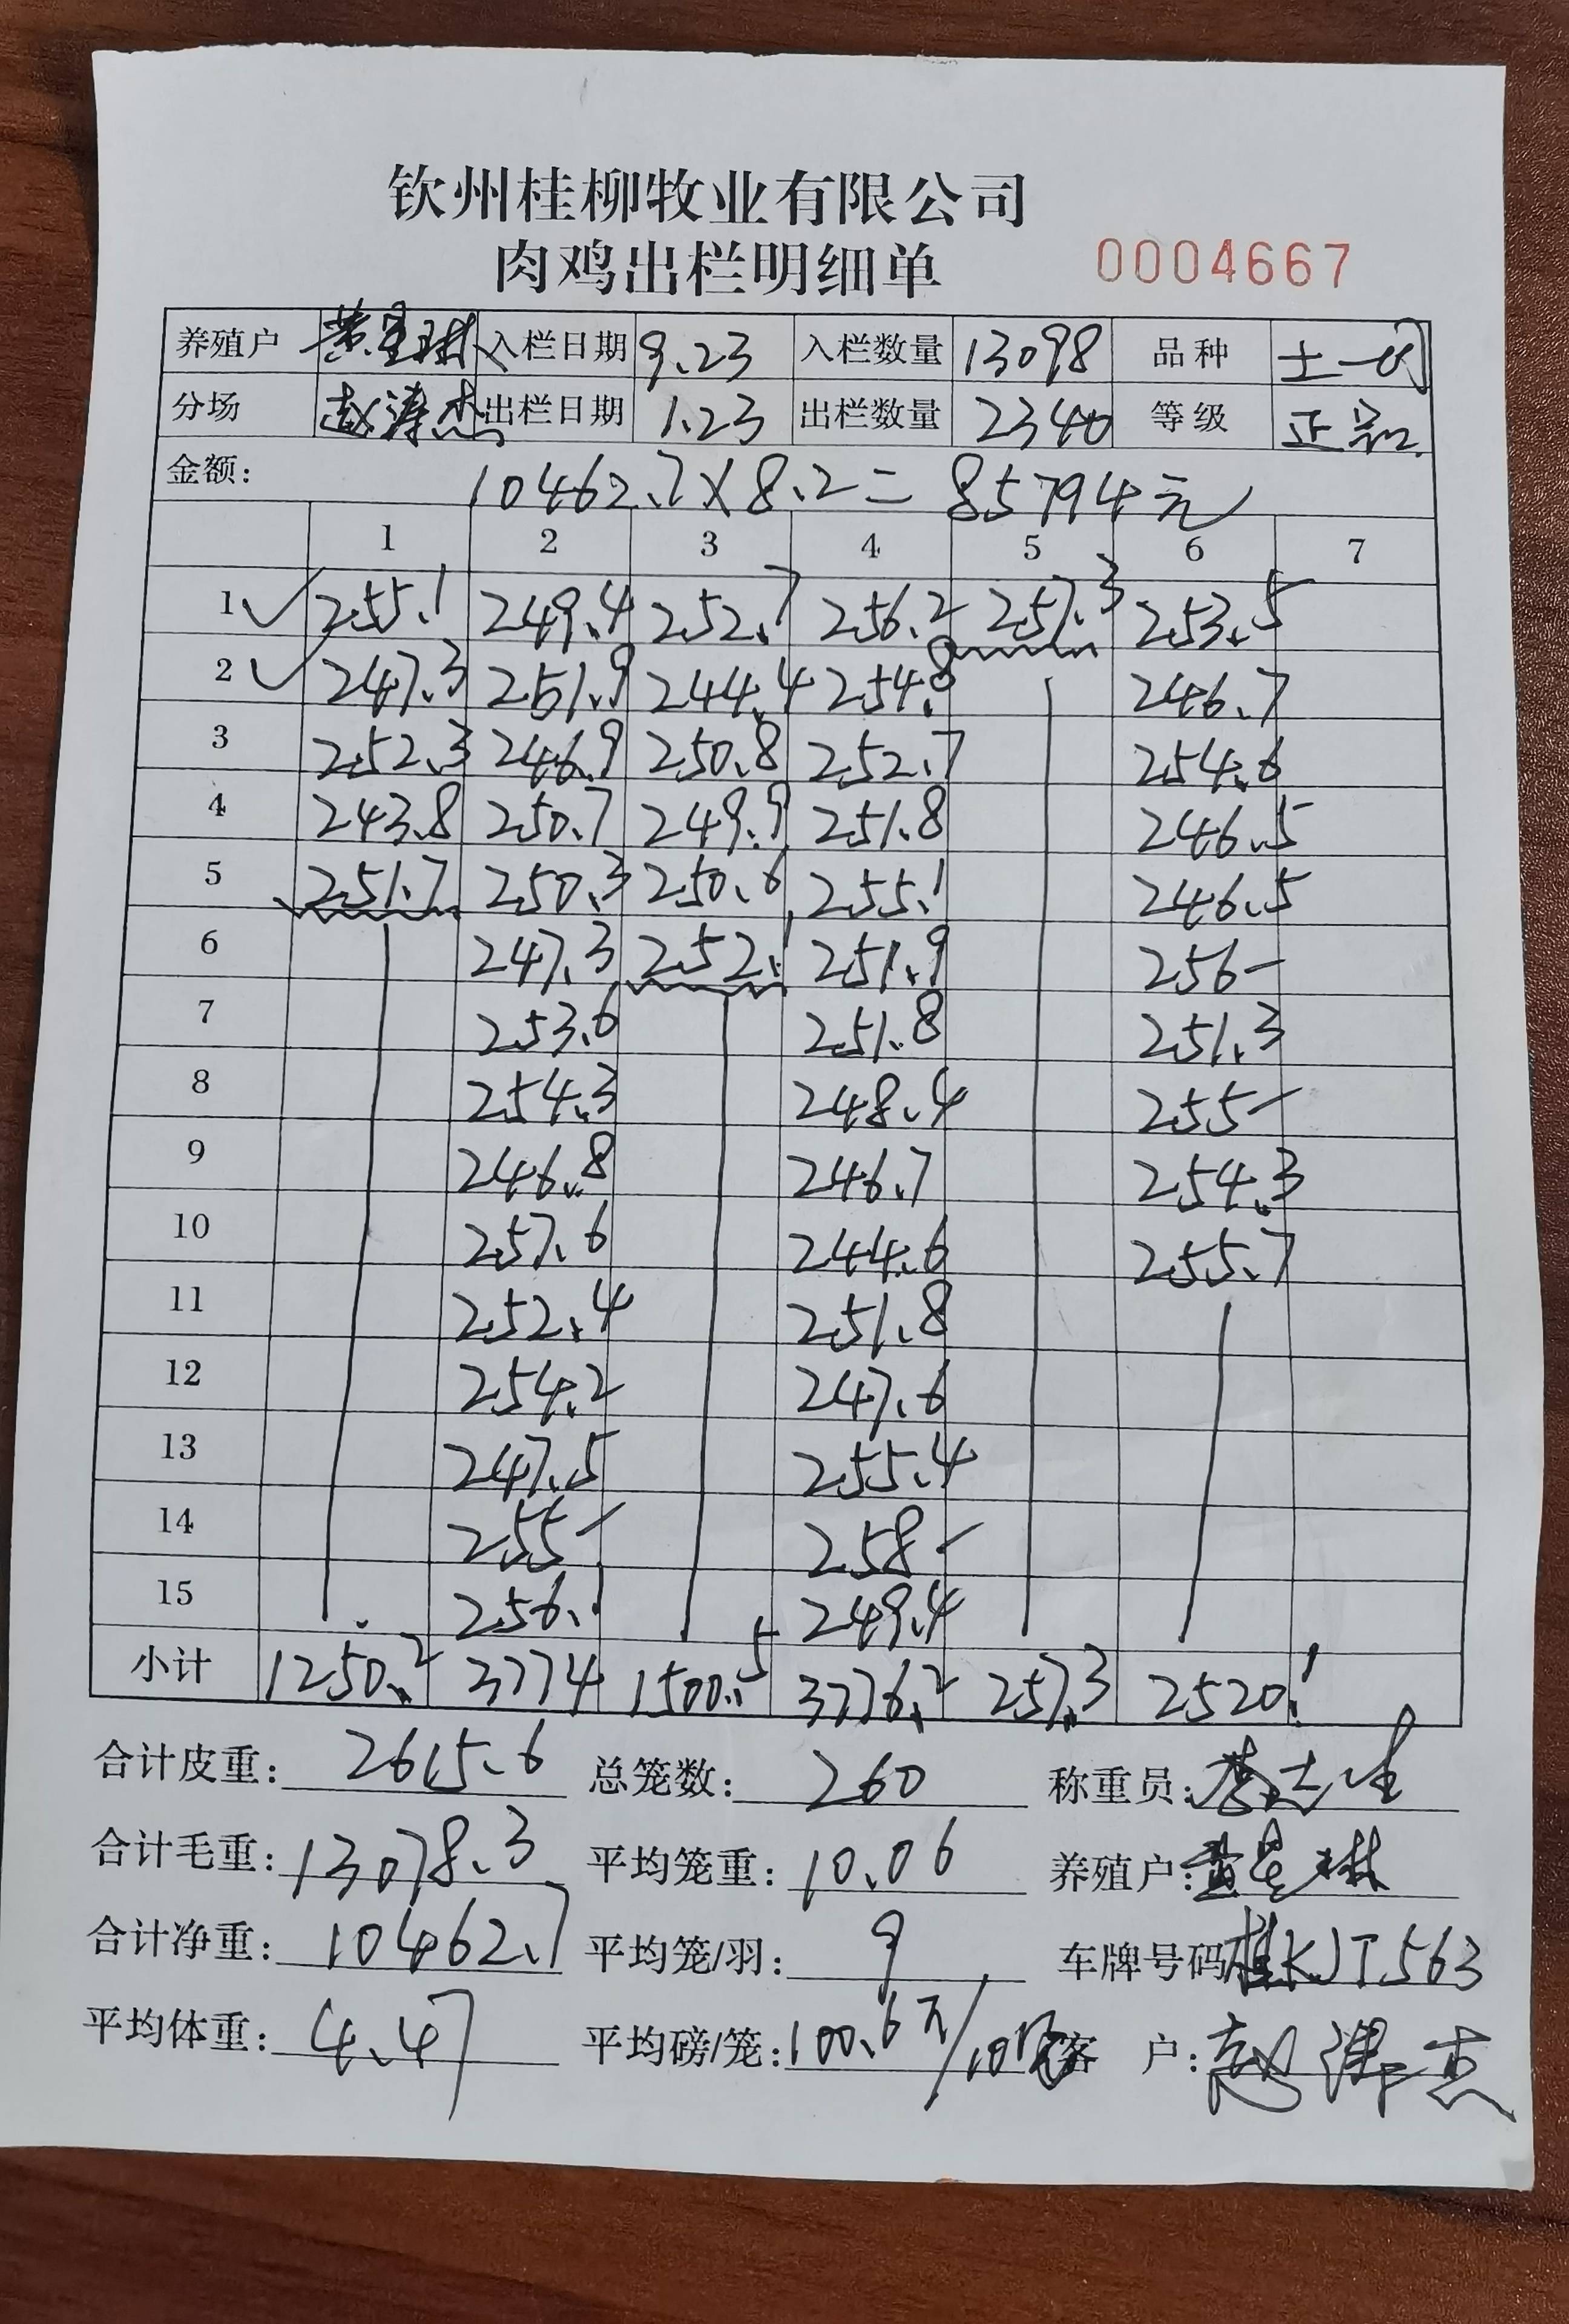 钦州桂柳牧业有限公司
肉鸡出栏明细单 0004667
养殖户 黄星琳 入栏日期 9.23 入栏数量 13098 品种 土一
分场 赵泽杰 出栏日期 1.23 出栏数量 2340 等级 正品
金额: 10462.7×8.2=85794元
1 2 3 4 5 6 7
1 255.1 249.4 252.7 256.2 257.3 253.5
2 247.3 251.9 244.4 254.8 246.7
3 252.3 246.9 250.8 252.7 254.6
4 243.8 250.7 249.9 251.8 246.5
5 251.7 250.3 250.6 255.1 246.5
6 247.3 252.1 251.9 256-
7 253.6 251.8 251.3
8 254.3 248.4 255-
9 246.8 246.7 254.3
10 257.6 244.6 255.7
11 252.4 251.8
12 254.2 247.6
13 247.5 255.4
14 255- 258-
15 256.1 249.4
小计 1250.2 3774 1500.5 3776.2 257.3 2520.1
合计皮重: 2615.6 总笼数: 260 称重员:
合计毛重: 13078.3 平均笼重: 10.06 养殖户: 黄星琳
合计净重: 10462.7 平均笼/羽: 9 车牌号码 桂KJT563
平均体重: 4.47 平均磅/笼: 100.6斤/10 客 户: 赵泽杰